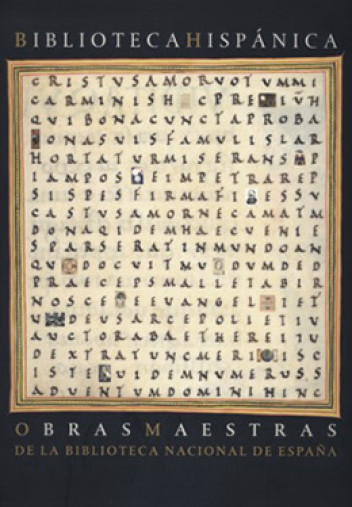 BIBLIOTECA HISPÁNICA
CRISTUSAMORUOTUMMI
CARMINISH CPRE IUH
QUIBONACUNCTAPROBA
ONASUISFAMULISLAR
HORTATURMISERANS P
IAMPOS EIMPETRAREP
SISPESFIRMATFI ESSU
CASTUSAMORNECAMATM
DONAQIDEMHAECUENIE
SPARSERATINMUNDOAN
QU DOCUITMU DUMDED
PRAECEPSMALLETABIR
NOSCE EUANGEL TET
U DEUSARCEPOLIETIU
AUCTORABAETHEREITU
DEXTRATUNCMERI ISC
ISTE UIDEMNUMERUSS
ADUENTUMDOMINIHINC
OBRAS MAESTRAS
DE LA BIBLIOTECA NACIONAL DE ESPAÑA